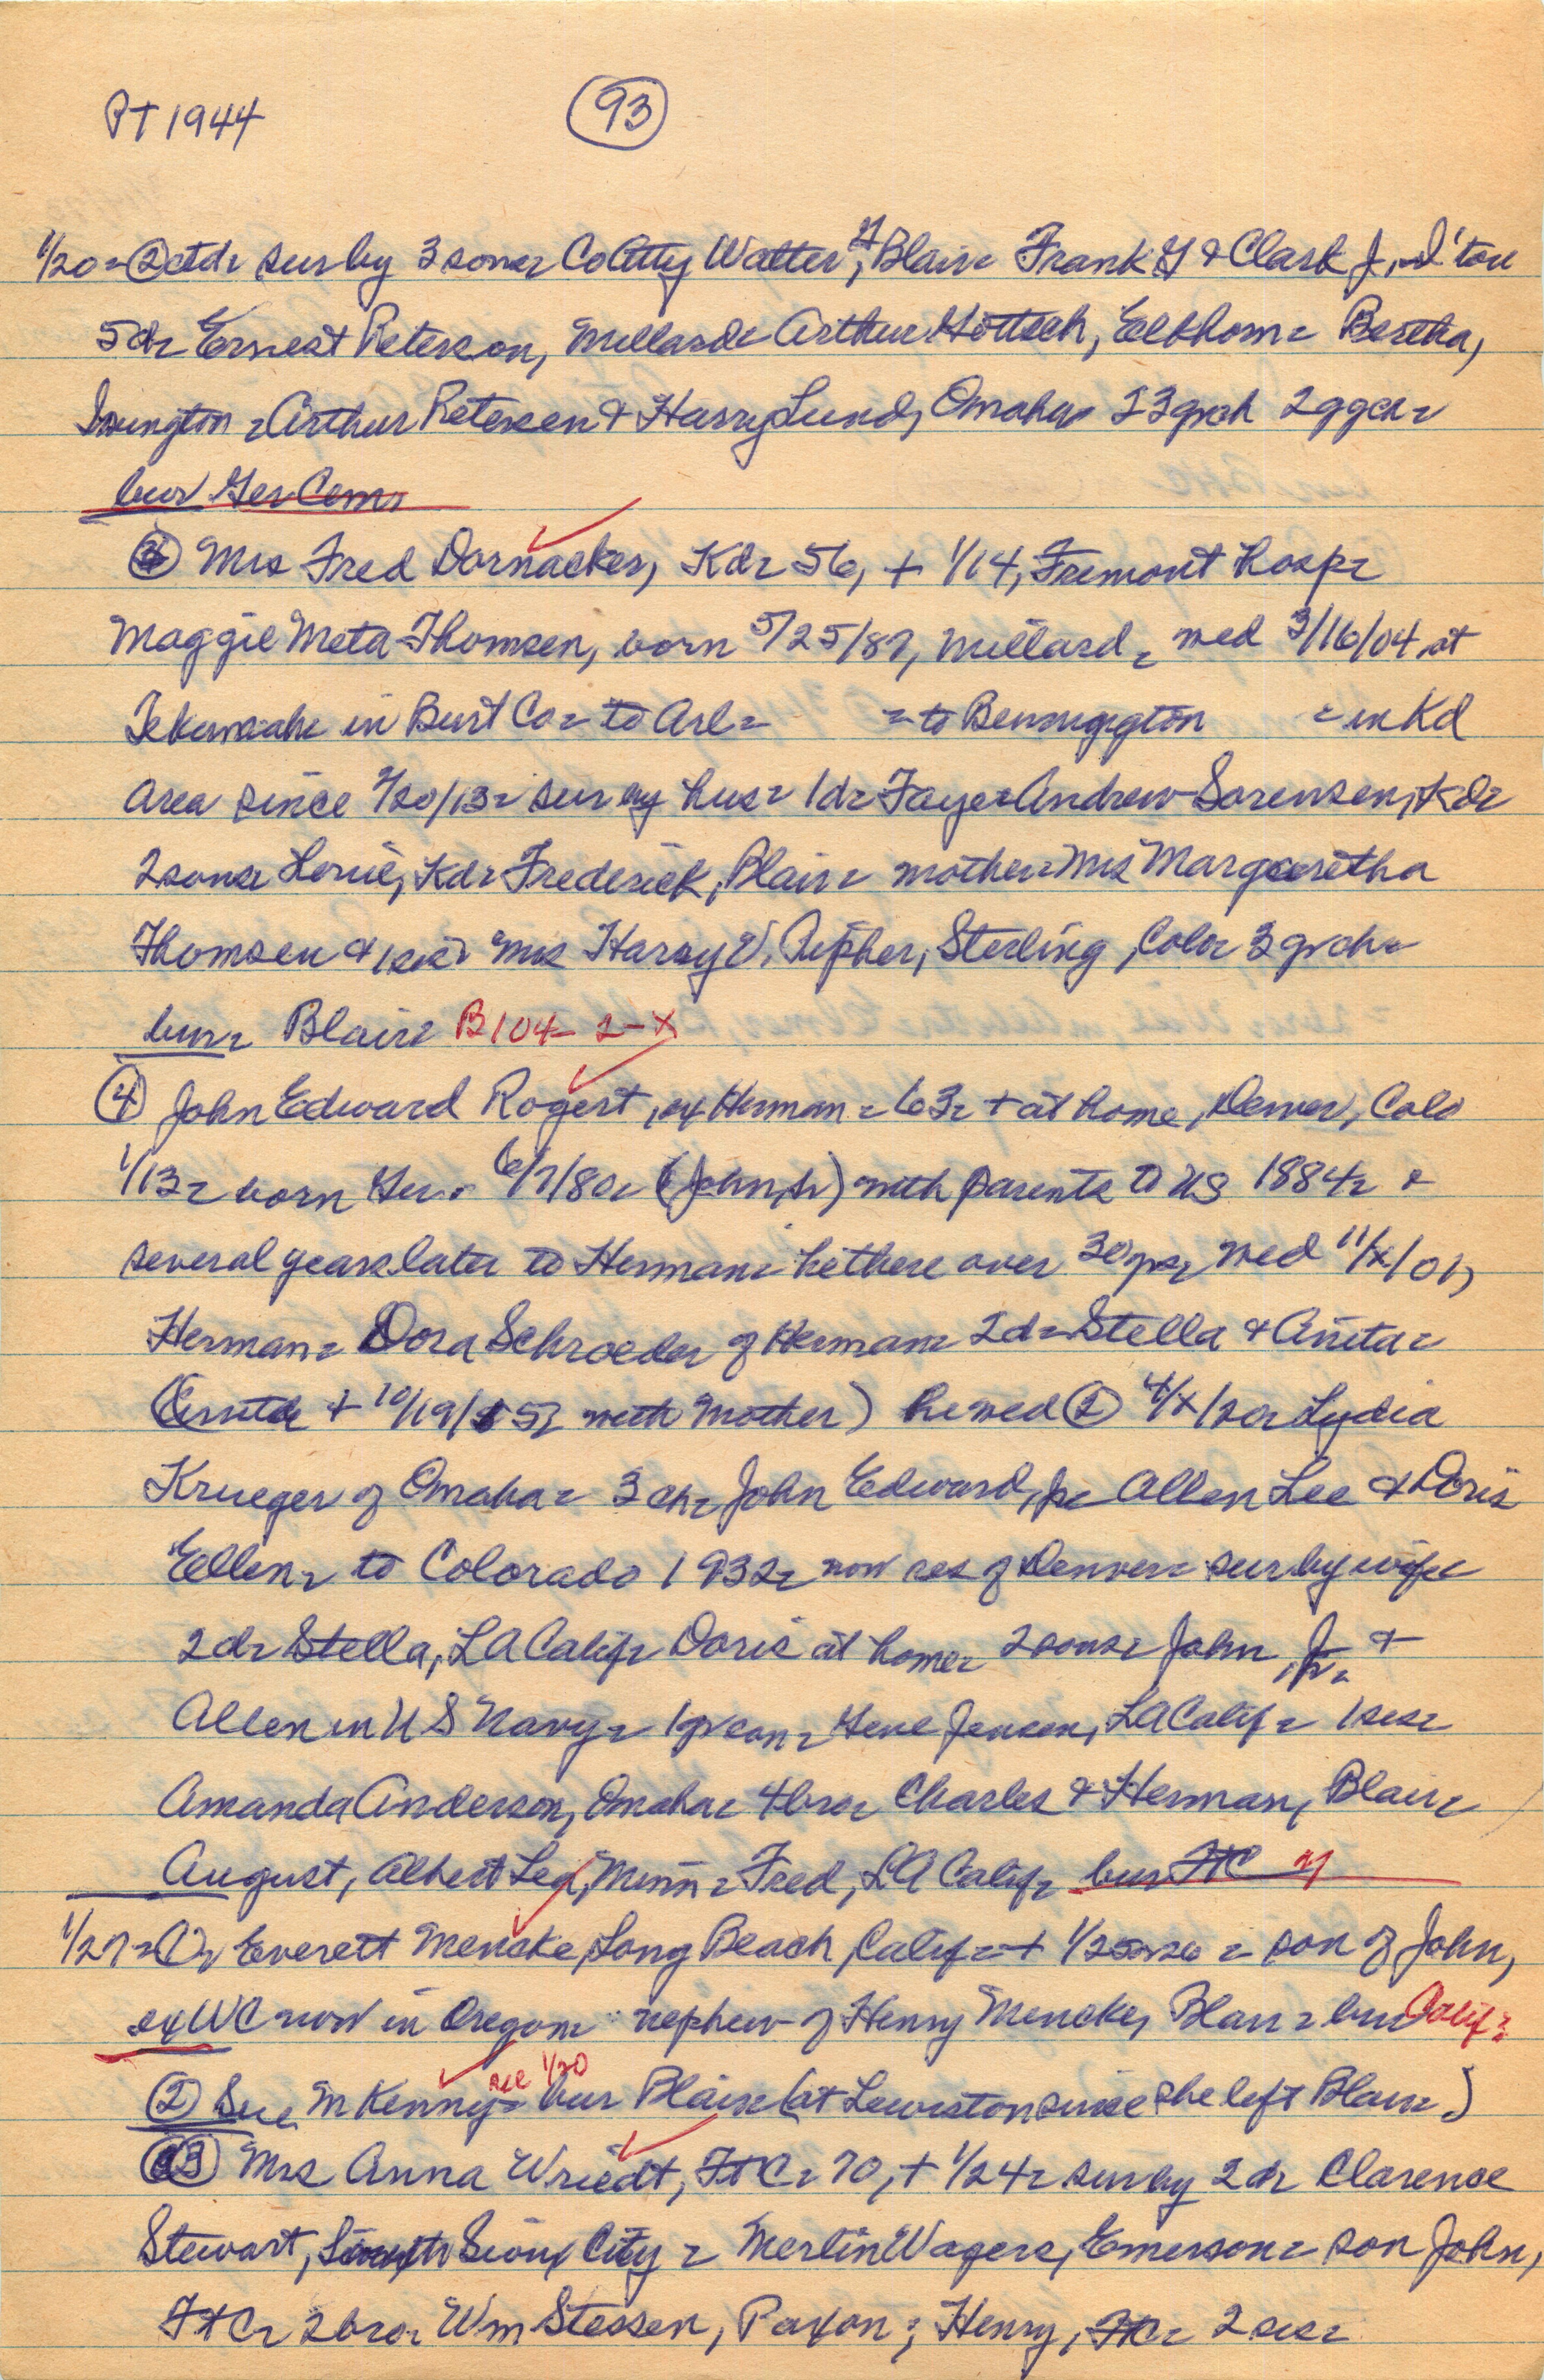 PT 1944
93
1/20 = ② ctd = sur by 3 sons = Co Atty Walter H, Blair = Frank G & Clark J,
5 d = Ernest Peterson, Millard = Arthur Hottsch, Elkhorn = Bertha,
Irvington = Arthur Petersen & Harry Lund, Omaha = 23 grch 2 ggch =
bur Ger Cem =
③ Mrs Fred Dornacker, Kd = 56, + 1/14, Fremont hosp =
Maggie Meta Thomsen, born 5/25/87, Millard = wed 3/16/04 at
Tekamah in Burt Co = to Arl = = to Bennington = in Kd
area since 2/20/13 = sur by hus = 1 d = Faye = Andrew Sorensen, Kd =
2 sons = Louie, Kd = Frederick, Blair = mother = Mrs Margaretha
Thomsen & 1 sis = Mrs Harry V. Pipher, Sterling, Colo = 3 grch =
bur = Blair = B104-2-X
④ John Edward Rogert, ex Herman = 63 = + at home, Denver, Colo
1/13 = born Ger = 6/7/80 = (John, Sr) with parents to US 1884 = &
several years later to Herman = he there over 30 yrs = wed 11/x/01,
Herman = Dora Schroeder of Herman = 2 d = Stella & Anita =
+ 10/19/ with mother) he wed ② 4/x/20 = Lydia
Krueger of Omaha = 3 ch = John Edward, Jr = Allen Lee & Doris
Ellen = to Colorado 1932 = now res of Denver = sur by wife
2 d = Stella, LA Calif = Doris at home = 2 sons = John, Jr, &
Allen in US Navy = 1 grson = Gene Jensen, LA Calif = 1 sis =
Amanda Anderson, Omaha = 4 bro = Charles & Herman, Blair =
August, Albert Lea, Minn = Fred, LA Calif = bur FtC
1/27 = ① = Everett Mencke, Long Beach, Calif = + = son of John,
ex WC now in Oregon = nephew of Henry Mencke, Blair = bur Calif =
② Sue McKenny = see 1/20 bur Blair (at Lewiston since she left Blair)
③ Mrs Anna Wriedt, FtC = 70, + 1/24 = sur by 2 d = Clarence
Stewart, South Sioux City = Merlin Wagers, Emerson = son John,
FtC = 2 bro = Wm Stessen, Paxon; Henry, FtC = 2 sis =